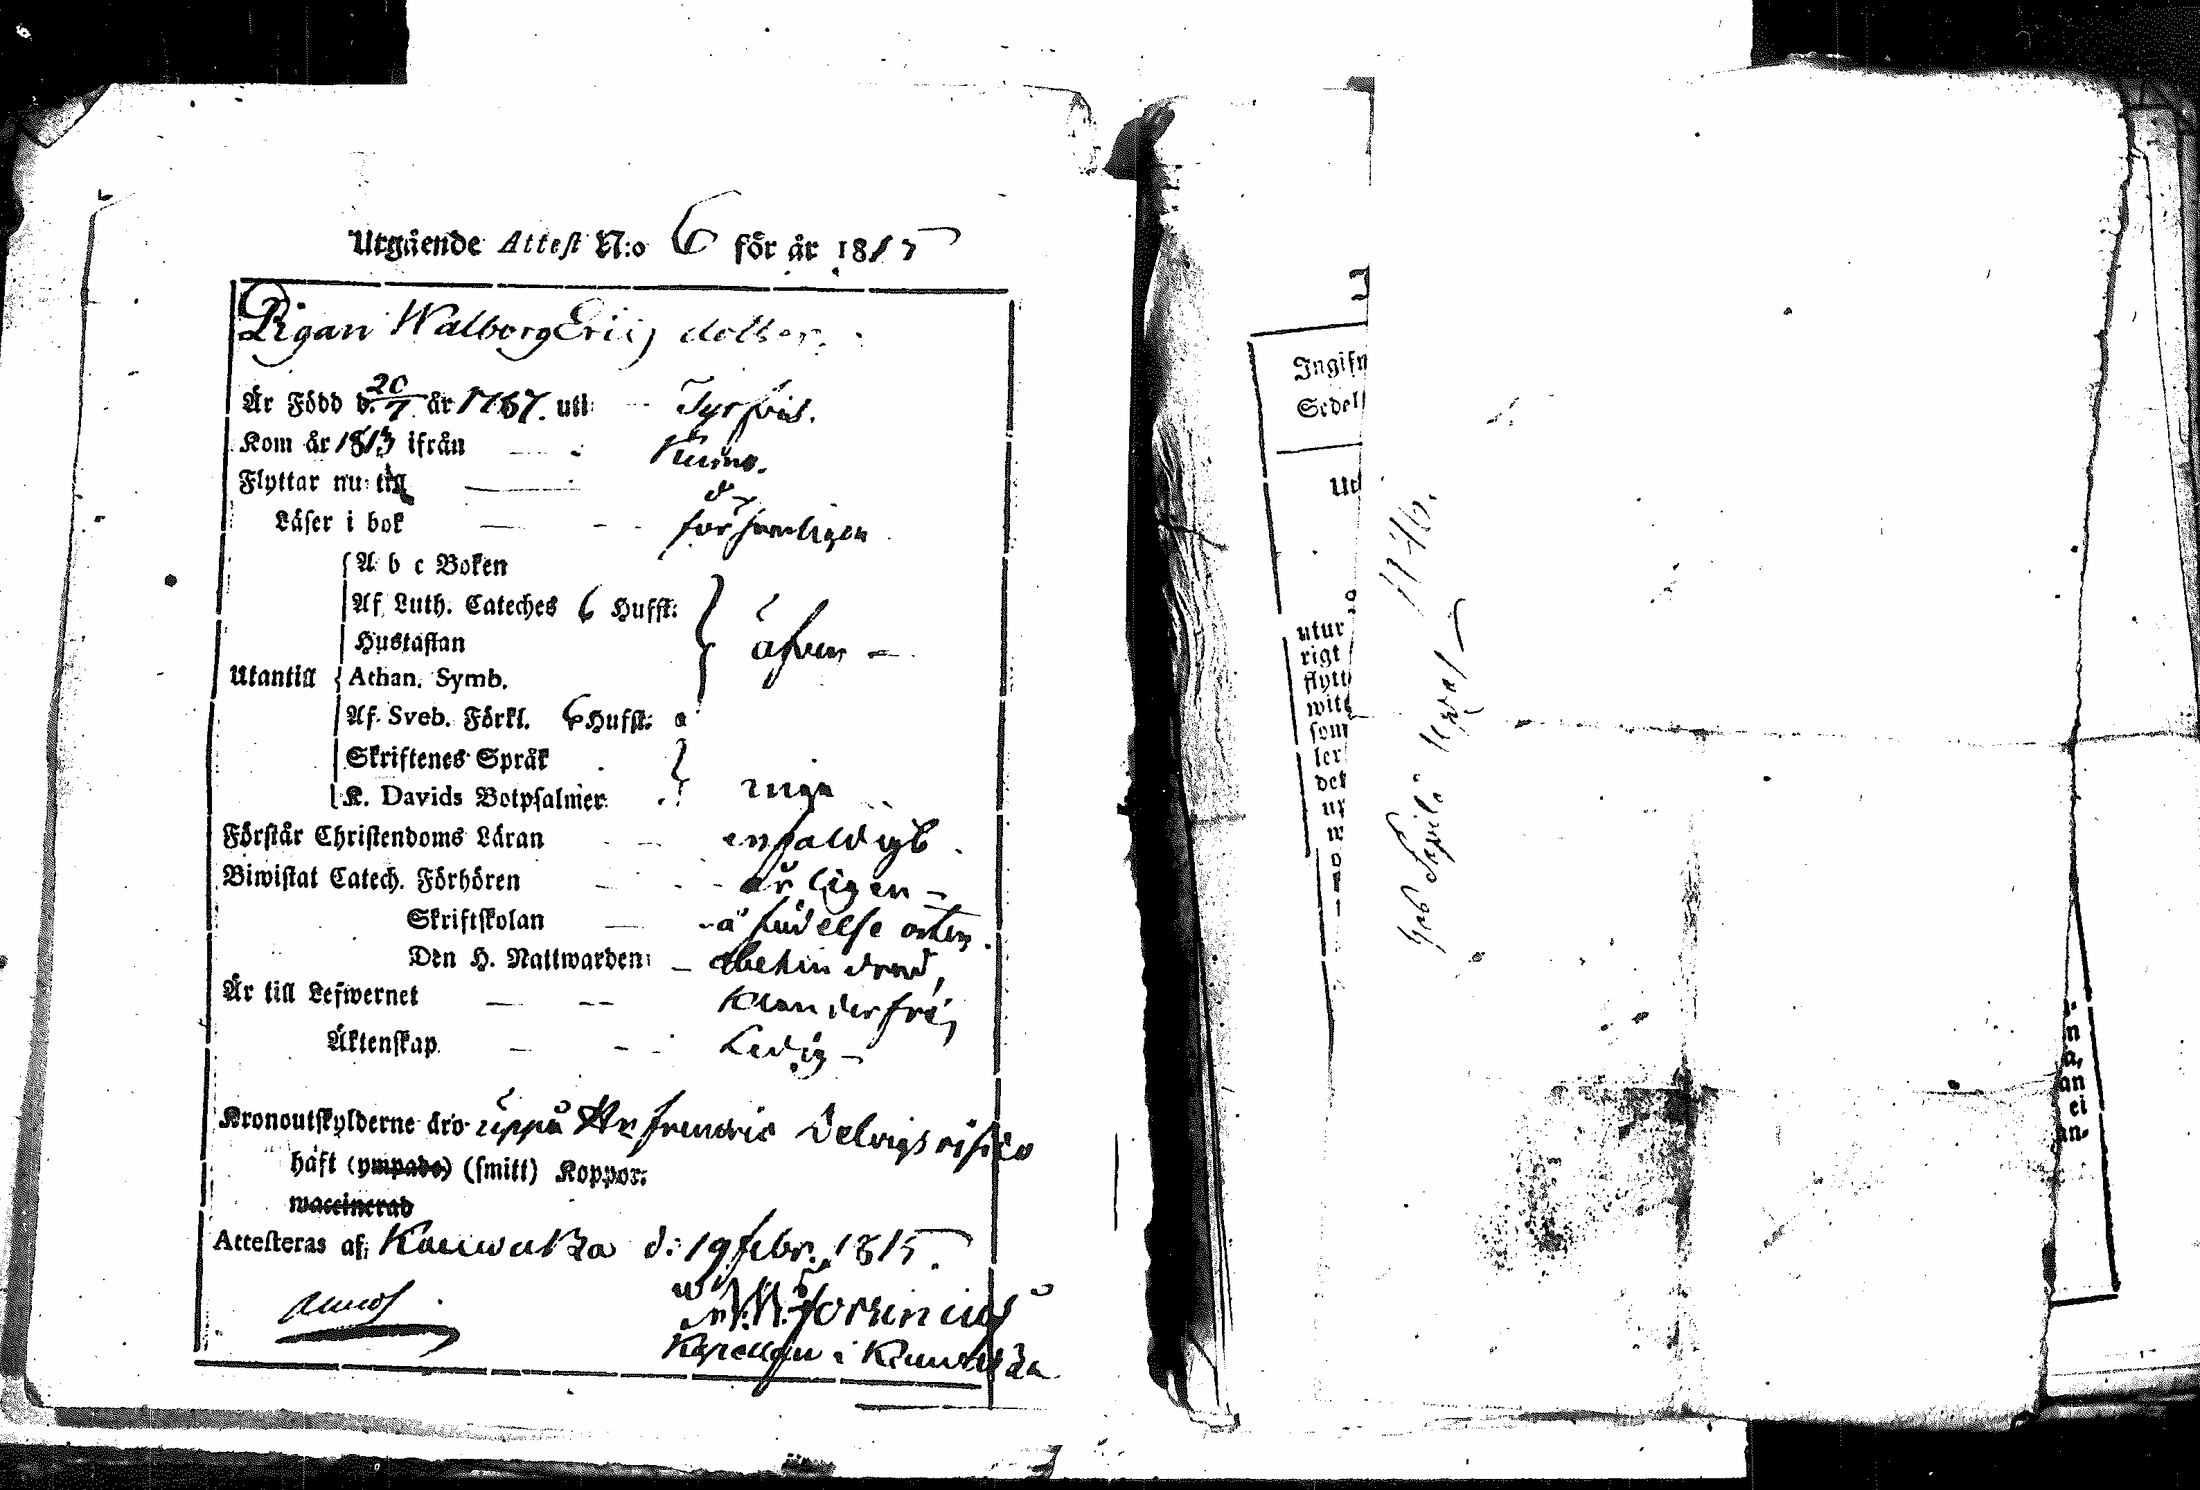 Utgående Attest N:o 6 för år 1815
Pigan Walborg Ericsdotter.
Är Född d. 20/7 år 1787. uti Tyrfvis.
Kom år 1813 ifrån Kumo.
Flyttar nu till d:o
Läser i bok försvarligen
A b c Boken
Af Luth. Cateches 6 Hufst:
Hustaflan
äfven
Utantill Athan. Symb.
Af Sveb. Förkl. 6 Hufst:
Skriftenes Språk
K. Davids Botpsalmer
inga
Förstår Christendoms Läran enfaldigt.
Biwistat Catech. Förhören årligen
Skriftskolan å födelse orten.
Den H. Nattwarden obehindrad,
Är till Lefwernet klanderfri,
Äktenskap Ledig
Kronoutskylderne äro uppå Hr Fredric
häft (ympade) (smitt) Koppor:
waccinerad
Attesteras af Kauwatza d: 19 Febr. 1815.
Kapellan i Kauwatza
Ingifn
Sedel
Ut
utur
rigt
flytt
witt
som
ler
det
1146.
n
a,
an
ei
an-